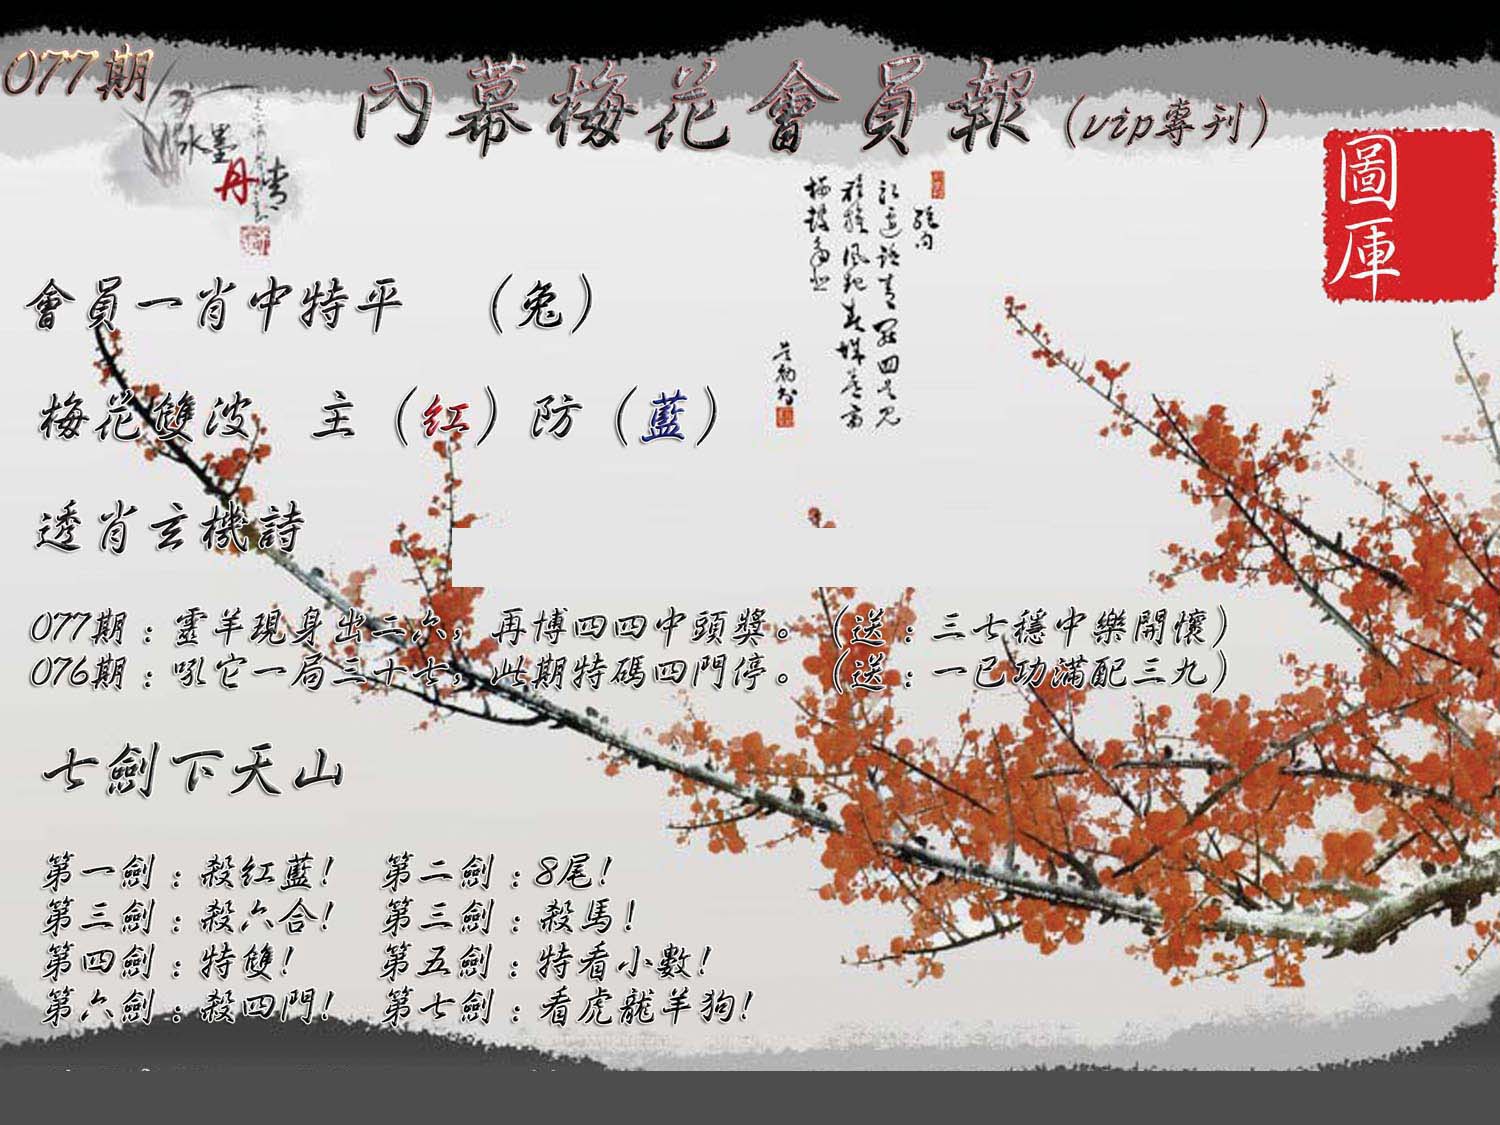 077期
內幕梅花會員報(vip專刊)
水墨
丹情
圖庫
會員一肖中特平 (兔)
梅花雙波 主(紅)防(藍)
透肖玄機詩
077期:靈羊現身出二六,再博四四中頭獎。(送:三七穩中樂開懷)
076期:吼它一局三十七,此期特碼四門停。(送:一已功滿配三九)
七劍下天山
第一劍:殺紅藍! 第二劍:8尾!
第三劍:殺六合! 第三劍:殺馬!
第四劍:特雙! 第五劍:特看小數!
第六劍:殺四門! 第七劍:看虎龍羊狗!